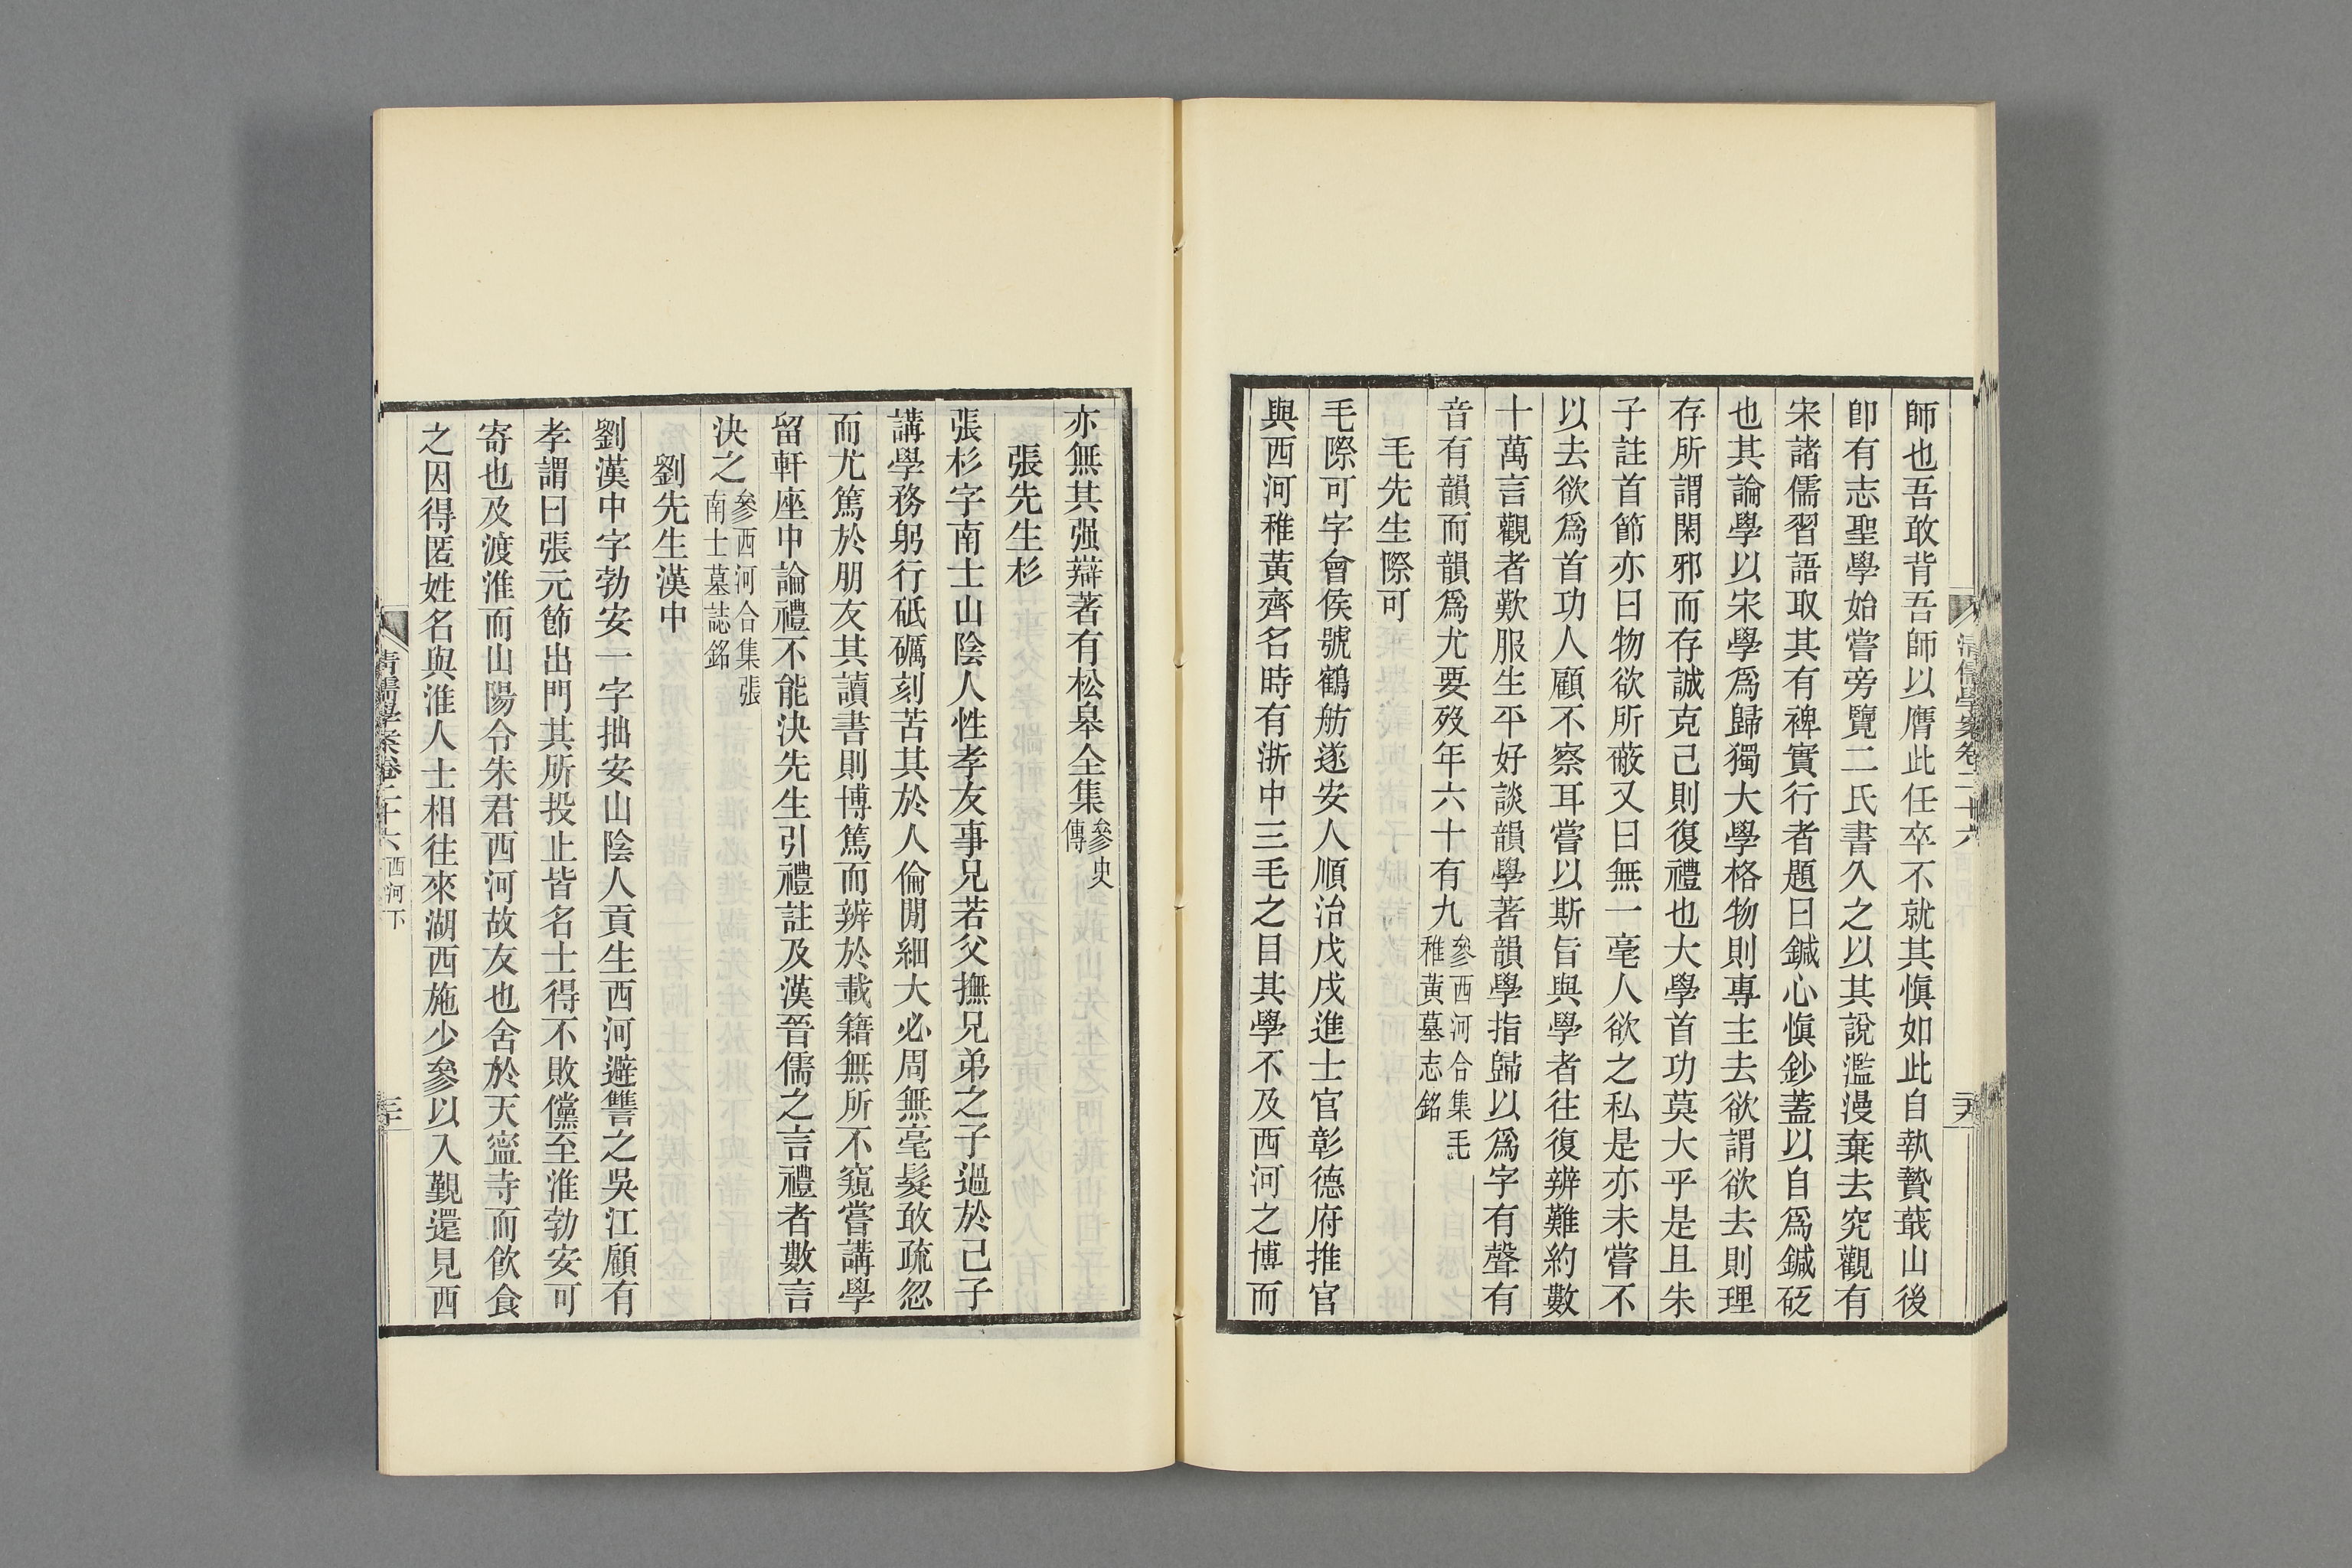 清儒學案卷二十六
師也吾敢背吾師以膺此任卒不就其愼如此自執贄蕺山後
卽有志聖學始嘗旁覽二氏書久之以其說濫漫棄去究觀有
宋諸儒習語取其有裨實行者題曰鍼心愼鈔蓋以自爲鍼砭
也其論學以宋學爲歸獨大學格物則專主去欲謂欲去則理
存所謂閑邪而存誠克己則復禮也大學首功莫大乎是且朱
子註首節亦曰物欲所蔽又曰無一毫人欲之私是亦未嘗不
以去欲爲首功人顧不察耳嘗以斯旨與學者往復辨難約數
十萬言觀者歎服生平好談韻學著韻學指歸以爲字有聲有
音有韻而韻爲尤要歿年六十有九參西河合集毛
稚黃墓志銘
毛先生際可
毛際可字會侯號鶴舫遂安人順治戊戌進士官彰德府推官
與西河稚黃齊名時有浙中三毛之目其學不及西河之博而
亦無其强辯著有松皋全集參史
傳
張先生杉
張杉字南士山陰人性孝友事兄若父撫兄弟之子過於己子
講學務躬行砥礪刻苦其於人倫閒細大必周無毫髮敢疏忽
而尤篤於朋友其讀書則博篤而辨於載籍無所不窺嘗講學
留軒座中論禮不能決先生引禮註及漢晉儒之言禮者數言
決之參西河合集張
南士墓誌銘
劉先生漢中
劉漢中字勃安一字拙安山陰人貢生西河避讐之吳江顧有
孝謂曰張元節出門其所投止皆名士得不敗儻至淮勃安可
寄也及渡淮而山陽令朱君西河故友也舍於天寧寺而飮食
之因得匿姓名與淮人士相往來湖西施少參以入覲還見西
清儒學案卷二十六 西河下 三十